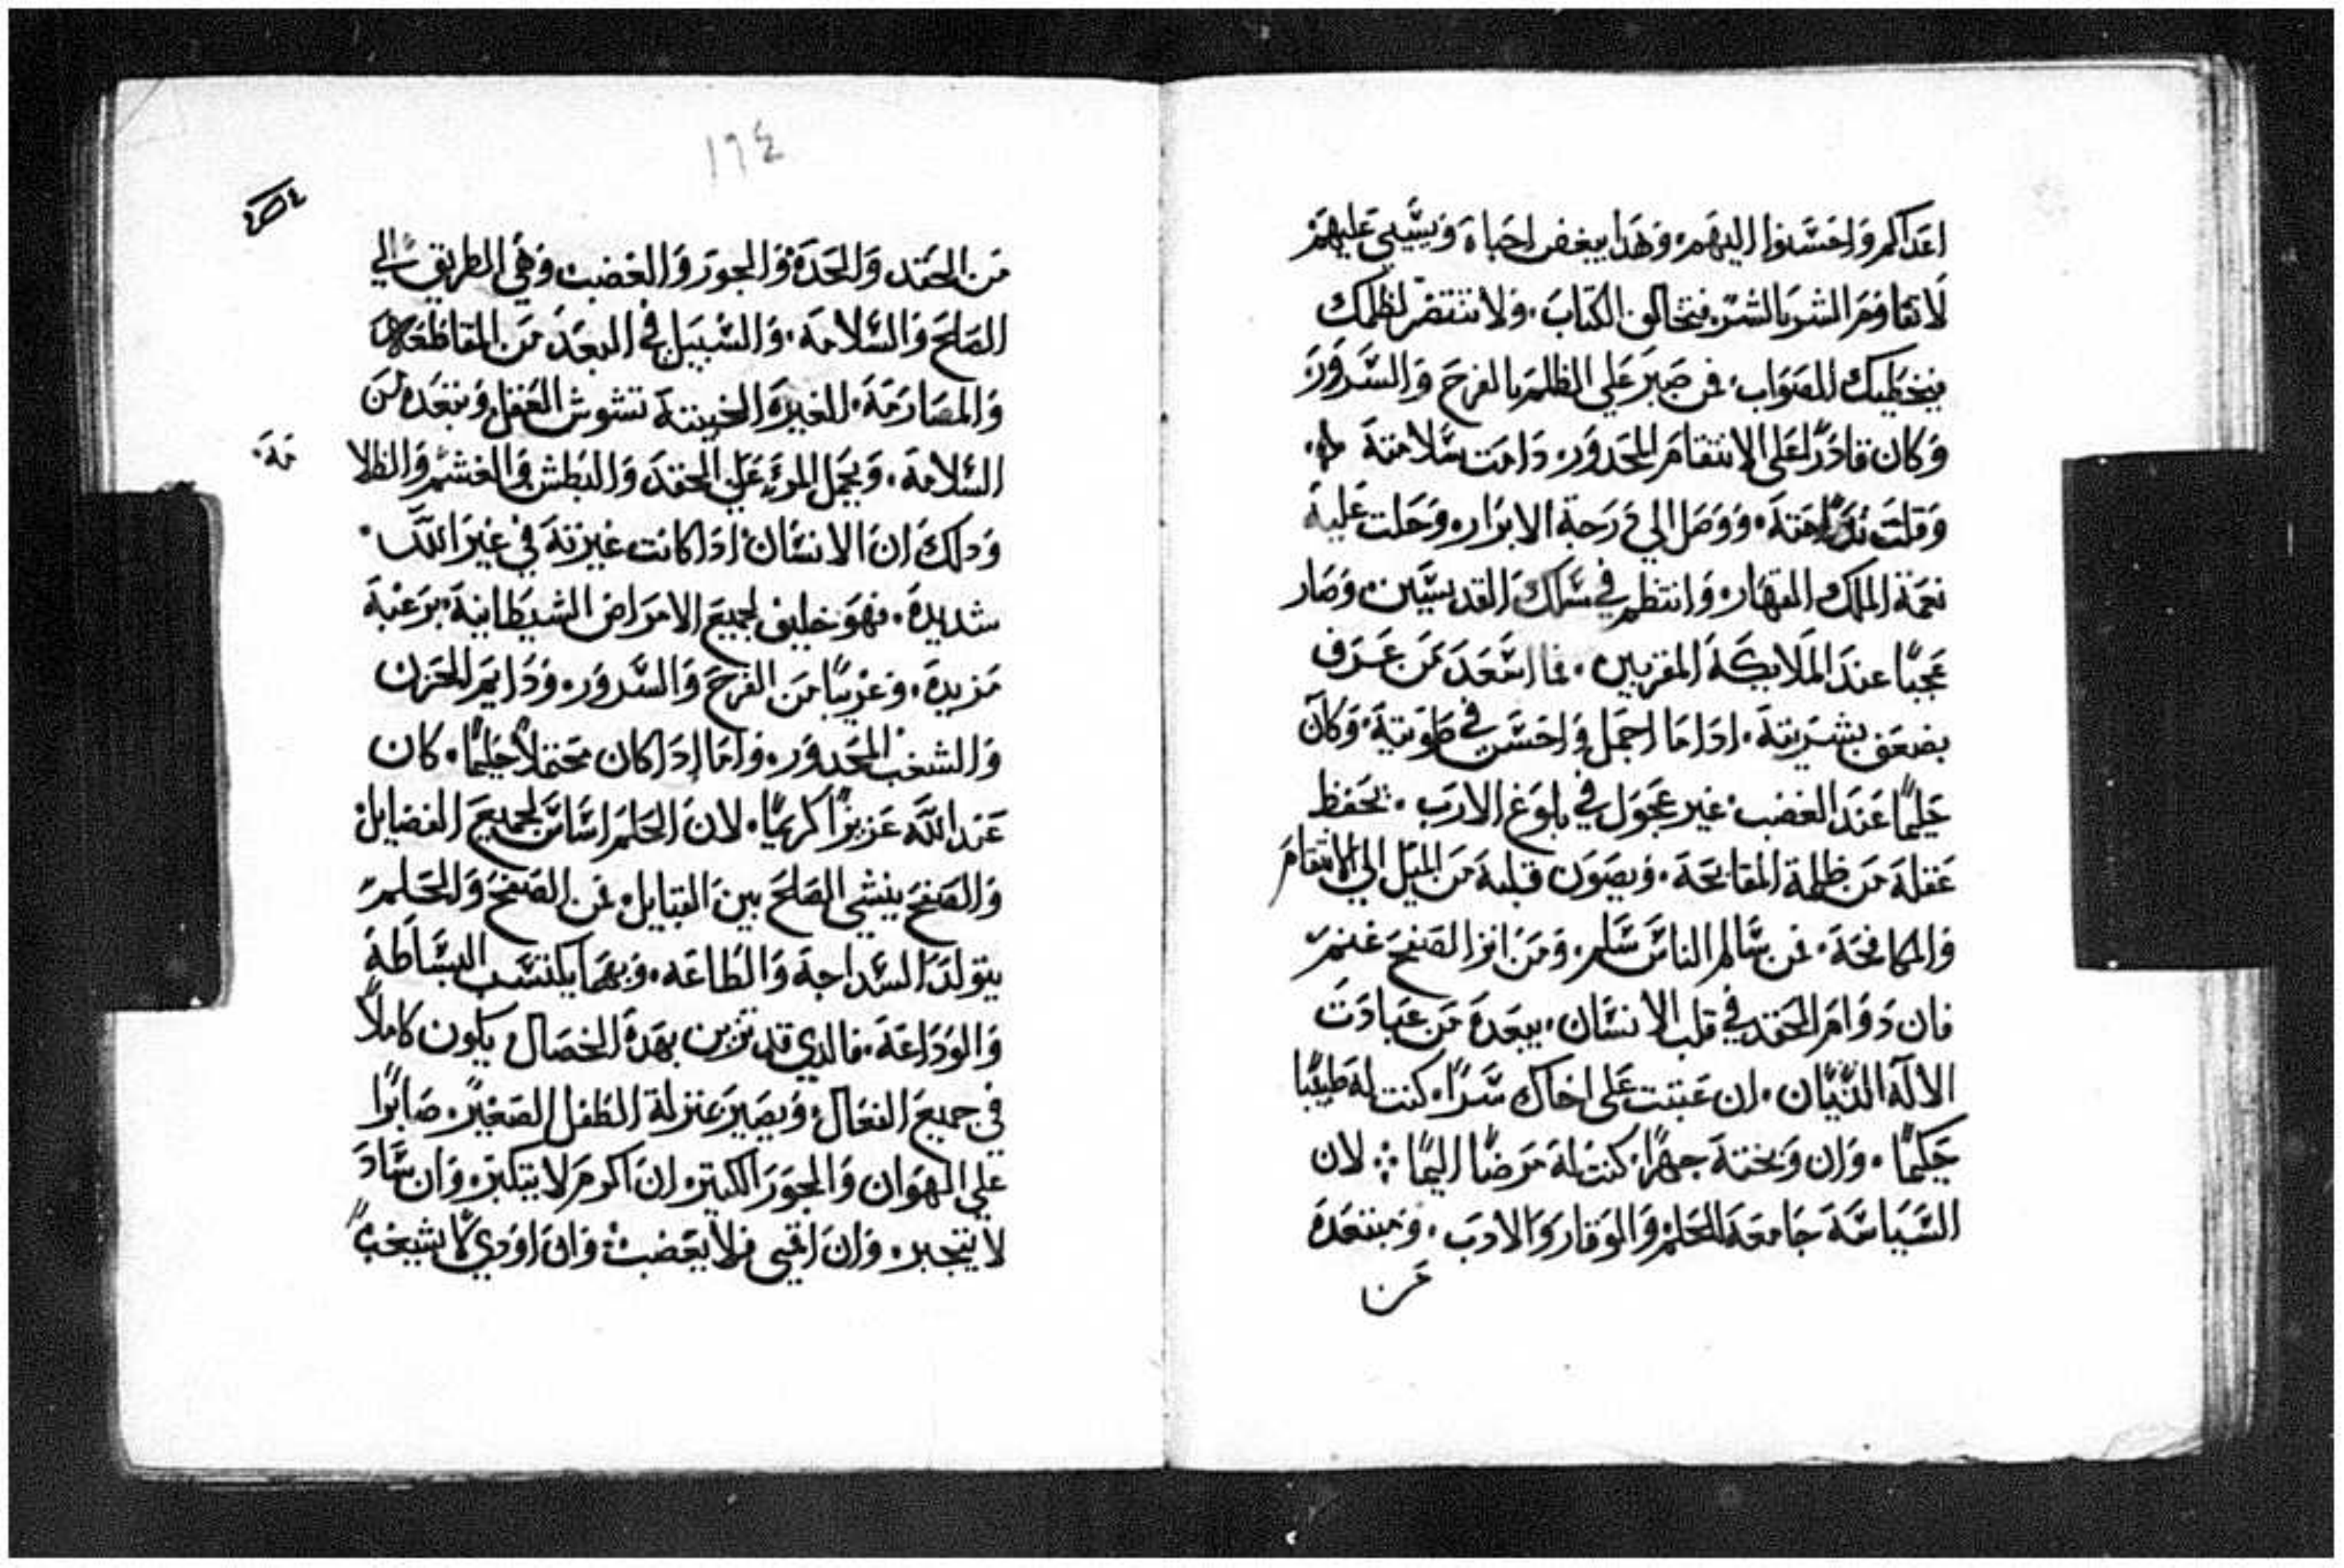 اعداكم واحسنوا اليهم، وهدا يبغض احباه ويسي عليهم
لا تقاوم الشر بالشر فتخالف الكتاب، ولا تنتقم لظلمك
فيخطيك الصواب، فمن صبر علي الظلم بالفرح والسرور
وكان قادرا علي الانتقام المحدور، دامت سلامته
وقلت ندامته، ووصل الي درجة الابرار، وحلت عليه
نعمة الملك القهار، وانتظم في سلك القديسين، وصار
عجبا عند الملايكة المقربين، فما اسعد من عرف
بضعف بشريته، ادا ما اجمل واحسن في طويته، وكان
حليما عند الغضب، غير عجول في بلوغ الارب، يحفظ
عقله من ظلمة المقابحة، ويصون قلبه من الميل الي الانتقام
والمكافحة، فمن سالم الناس سلم، ومن اثر الصفح غنم
فان دوام الحقد في قلب الانسان، يبعده من عبادت
الاله الديان، ان عبتت علي اخاك سرا، كنت له طبيبا
حكيما، وان وبخته جهرا، كنت له مرضا اليما ؞ لان
السياسة جامعة للحلم والوقار والادب، ومبتعدة
عن
١٦٤
من الحقد والحدة والجور والغضب وهي الطريق الي
الصلح والسلامة، والسبيل في البعد من المقاطعه
والمصارمة، للغيرة الخبيتة تشوش العقل وتبعده من
السلامة، وتحمل المرء علي الحقد والبطش والغشم والظلا
مة،
ودلك ان الانسان ادا كانت غيرته في غير الله
شديدة، فهو خليف لجميع الامراض الشيطانية برغبة
مزيدة، وغريبا من الفرح والسرور، ودايم الحزن
والشغب المحدور، واما ادا كان محتملا حليما، كان
عند الله عزيزا كريما، لان الحلم اساس لجميع الفضايل
والصفح ينشي الصلح بين القبايل، فمن الصفح والحلم
يتولد السداجة والطاعه، وبهما يكتسب البساطة
والوداعة، فالدي قد تزين بهدة الخصال يكون كاملا
في جميع الفعال، ويصير بمنزلة الطفل الصغير، صابرا
علي الهوان والجور الكتير، ان اكرم لا يتكبر، وان ساد
لا يتجبر، وان اقمي فلا يغضب، وان اودي لا يشغب